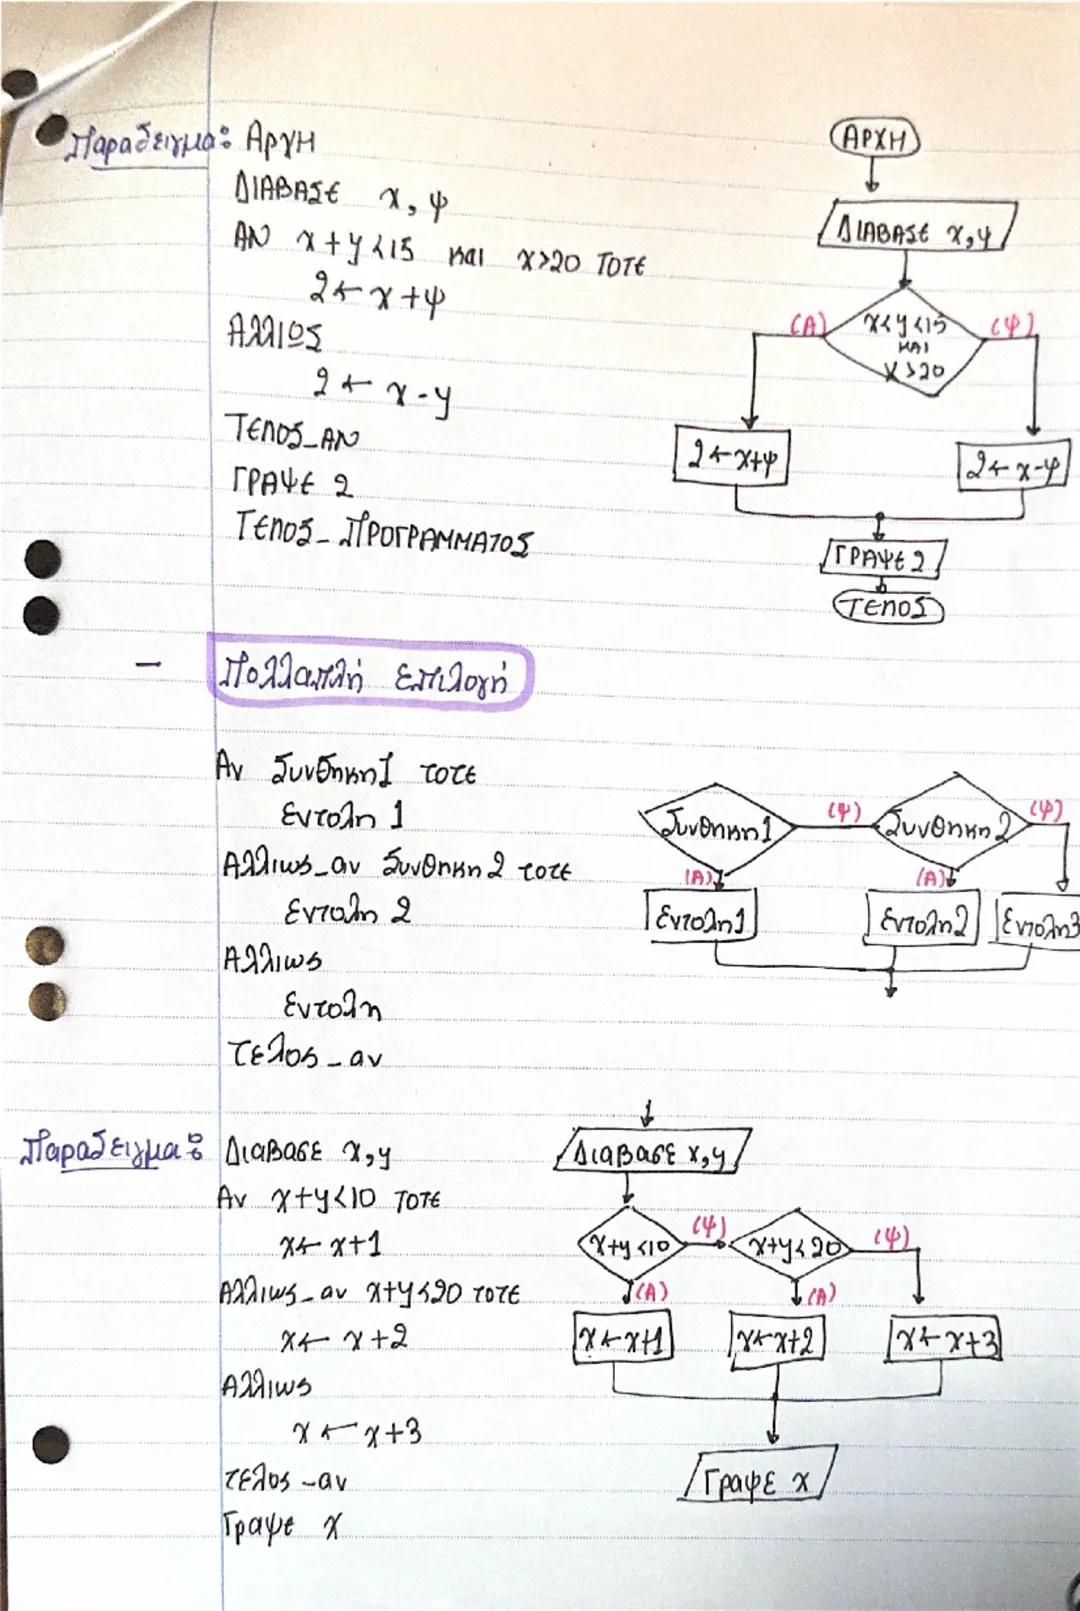 Παραδειγμα: Αρχη
ΔΙΑΒΑΣΕ x, ψ
ΑΝ x+y<15 και x>20 ΤΟΤΕ
2←x+ψ
ΑλλΙΩΣ
2← x-y
ΤΕΛΟΣ_ΑΝ
ΓΡΑΨΕ 2
ΤΕΛΟΣ_ΠΡΟΓΡΑΜΜΑΤΟΣ
ΑΡΧΗ
ΔΙΑΒΑΣΕ x,ψ
x<y<15
ΚΑΙ
x>20
(Α)
(Ψ)
2←x+ψ
2←x-ψ
ΓΡΑΨΕ 2
ΤΕΛΟΣ
- Πολλαπλή επιλογή
Αν Συνθηκη1 τοτε
Εντολη 1
Αλλιως_αν Συνθηκη 2 τοτε
Εντολη 2
Αλλιως
Εντολη
Τελος_αν
Συνθηκη1
(Ψ)
Συνθηκη 2
(Ψ)
(Α)
(Α)
Εντολη1
Εντολη2
Εντολη3
Παραδειγμα: Διαβασε x,y
Αν x+y<10 ΤΟΤΕ
x← x+1
Αλλιως_αν x+y<20 τοτε
x← x+2
Αλλιως
x←x+3
τελος_αν
Γραψε x
Διαβασε x,y
x+y<10
(Ψ)
x+y<20
(Ψ)
(Α)
(Α)
x←x+1
x←x+2
x←x+3
Γραψε x